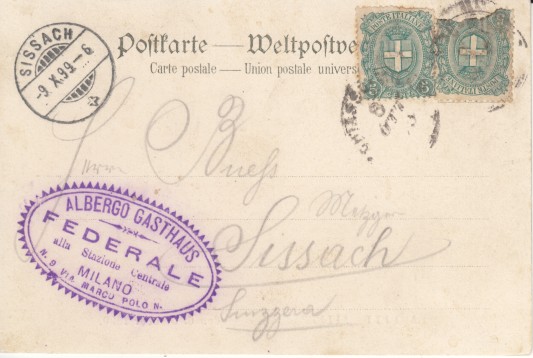 SISSACH
-9.X.99.-6
Postkarte — Weltpostve
Carte postale — Union postale univers
POSTE ITALIANE
POSTE ITALIANE
Herrn
Buess
Metzger
Sissach
Svizzera
ALBERGO GASTHAUS
FEDERALE
alla Stazione Centrale
MILANO
N. 9 VIA MARCO POLO N.